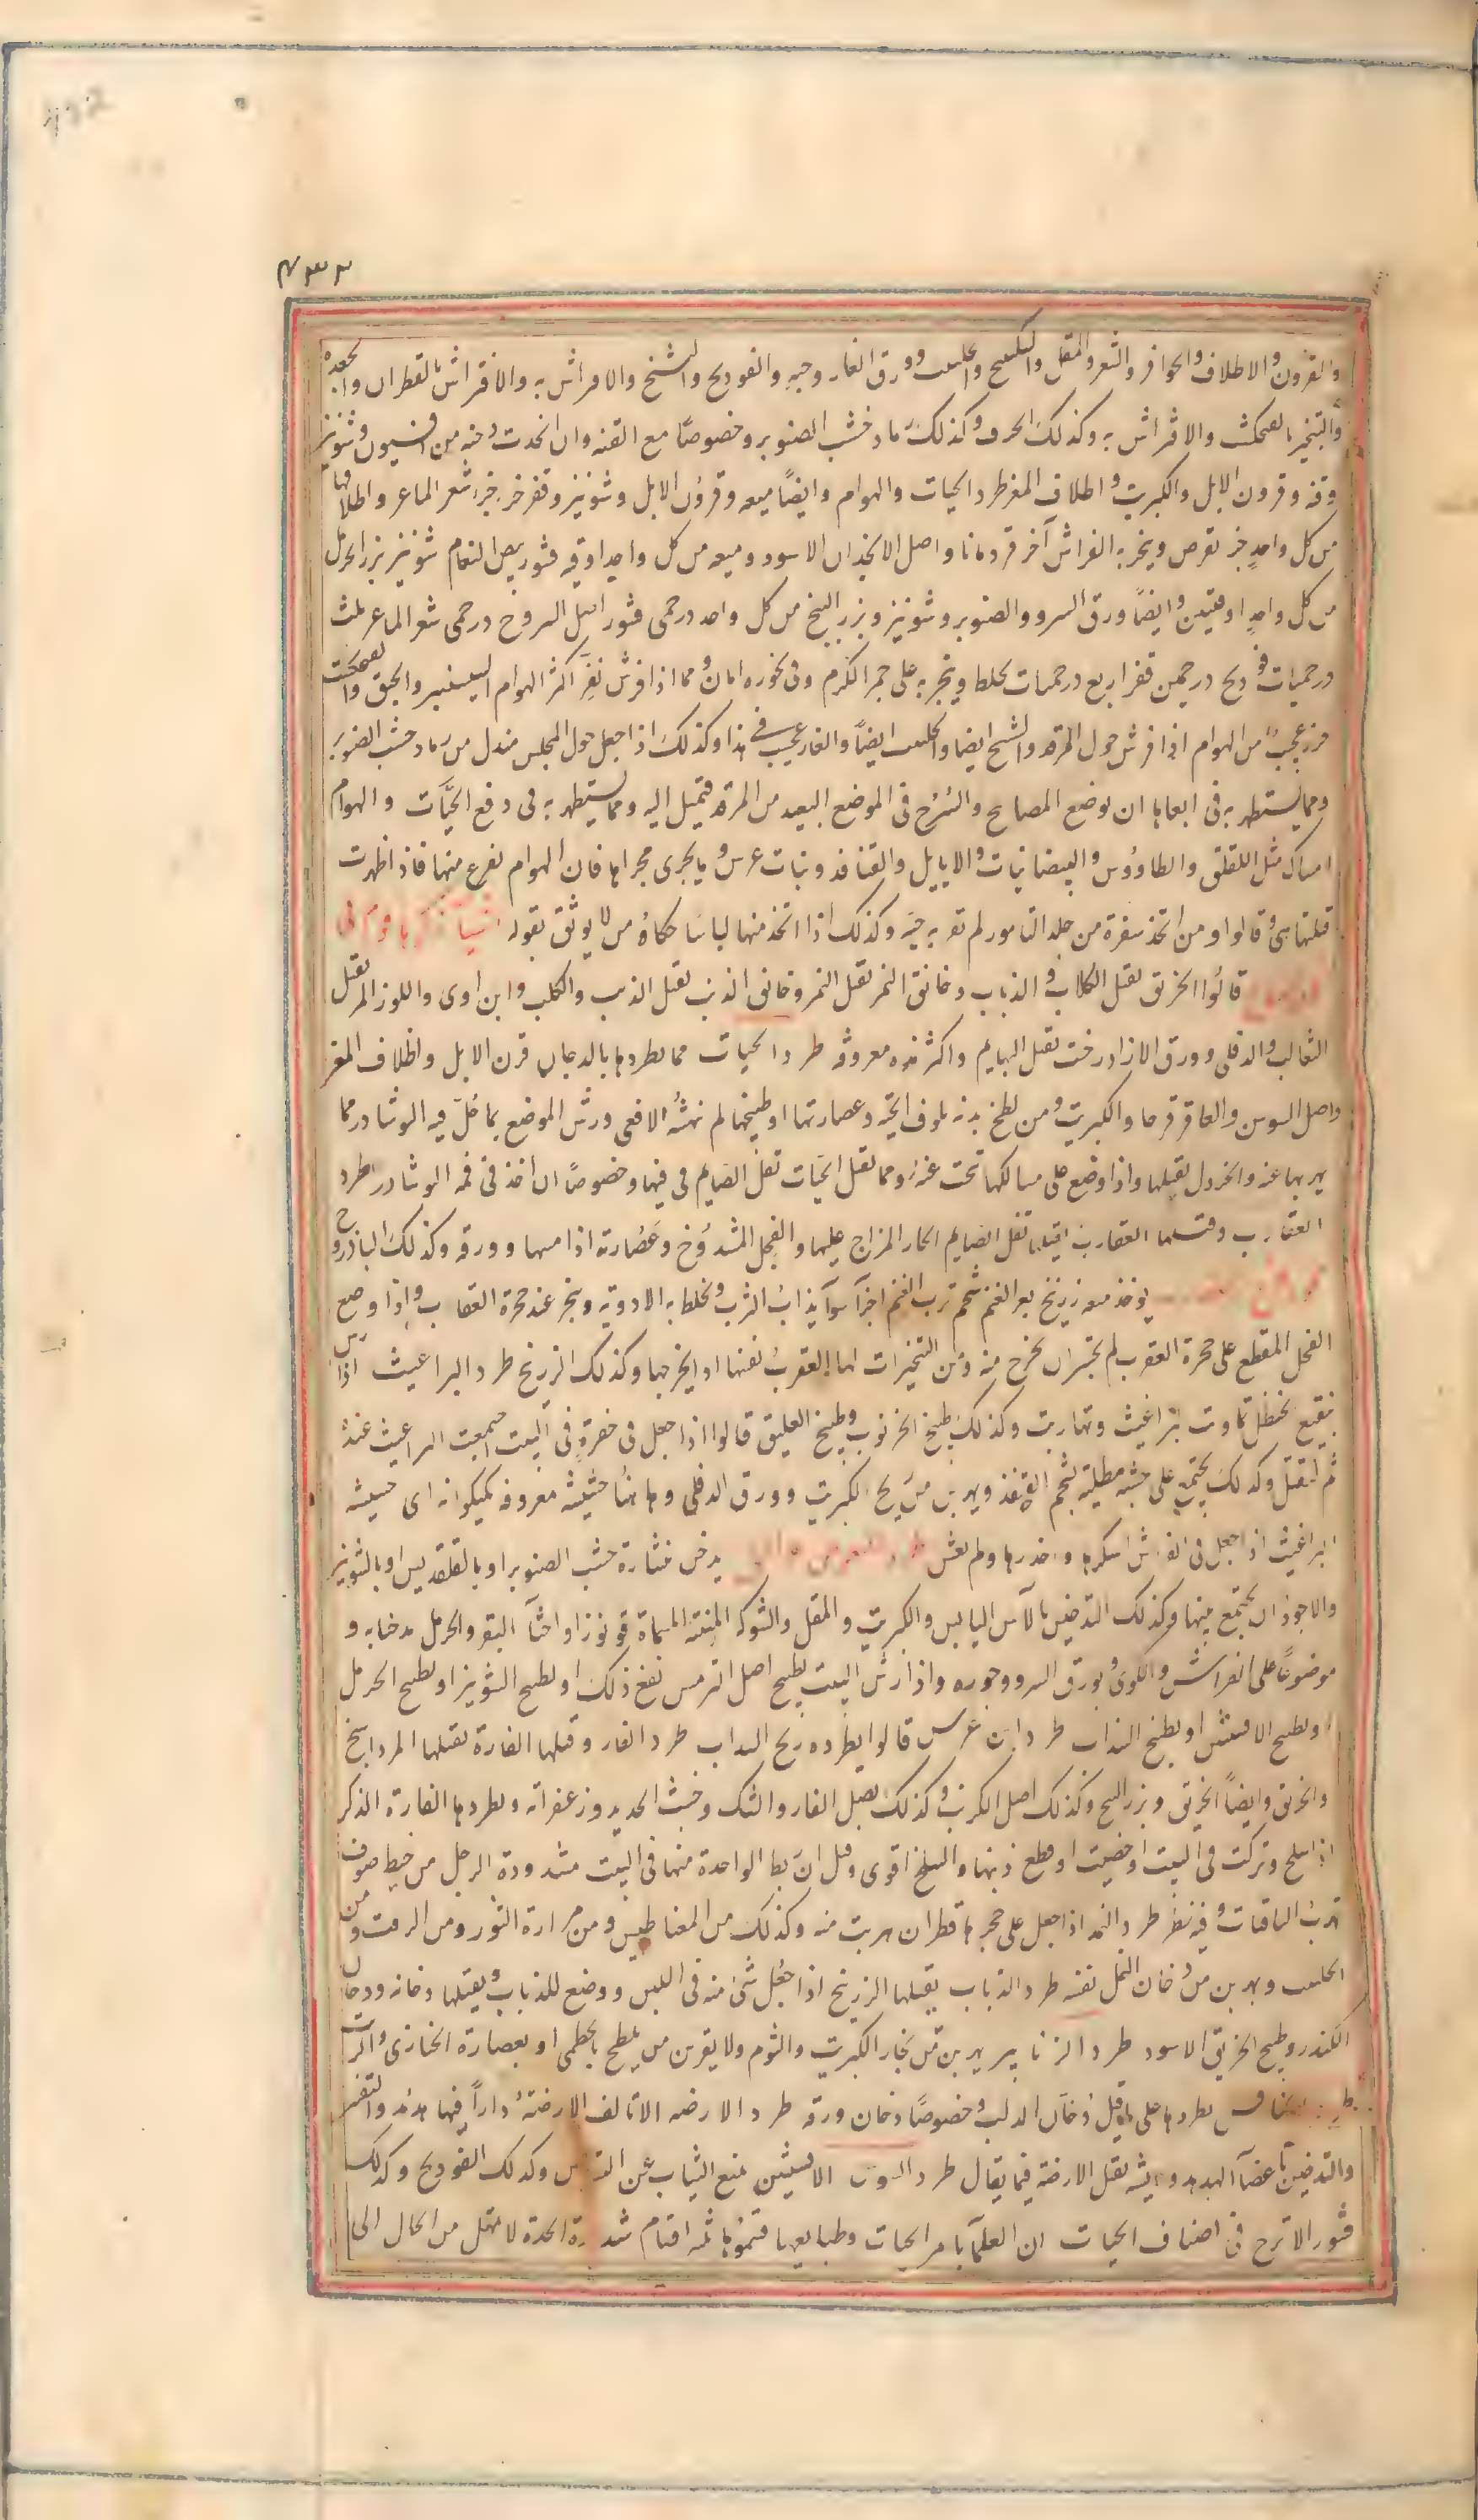 ٤٣٣
والقرون والاظلاف والحوافر والشعر والمقل والسكبينج والحلتيت وورق الغار وحبه والفودنج والشيخ والافراش به والافتراش بالقطران والجعدة
والتبخير بالفنجنكشت والافتراش به وكذلك الحرف وكذلك رماد خشب الصنوبر وخصوصًا مع القنه وان اتخدت دخنه من افسيون وشونيز
وقنه وقرون الايل والكبريت واظلاف المعز طرد الحيات والهوام وايضًا ميعه وقرون الايل وشونيز وقفر جزء جزء شعر الماعز واظلافها
من كل واحدٍ جزء يقرص ويبخر به الفراش آخر قردمانا واصل الانجذان الاسود وميعه من كل واحد اوقيه قشور بيض النعام شونيز بزر الحرمل
من كل واحدٍ اوقيتين وايضًا ورق السرو والصنوبر وشونيز وبزر البنج من كل واحد درخمى قشور اصل اليبروح درخمى شعر الماعز ثلث
درخميات فودنج درخمين قفر اربع درخميات يخلط ويبخر به على جمر الكرم وفى بخوره امان ومما اذا فرش نفر اكثر الهوام السيسنبر والحبق والفنجنكشت
حرز عجيب من الهوام اذا فرش حول المرقد والشيح ايضا والحلتيت ايضًا والغار عجيب فى هذا وكذلك اذا جعل حول المجلس مندل من رماد خشب الصنوبر
ومما يستظهر به فى ابعادها ان توضع المصابيح والسُرُج فى الموضع البعيد من المرقد فتميل اليه ومما يستظهر به فى دفع الحيَّات والهوام
امساك مثل اللقلق والطاووس والبيضانيات والايايل والقنافذ وبنات عرس وما يجرى مجراها فان الهوام تفزع منها فاذا ظهرت
قتلتها هى وقالوا ومن اتخذ سفرة من جلد النامور لم تقربه حية وكذلك اذا اتخذ منها لباسًا حكاه من لا يوثق بقوله
قالُوا الخربق يقتل الكلاب والذياب وخانق النمر يقتل النمر وخانق الذئب يقتل الذئب والكلب وابن اوى واللوز المر يقتل
الثعالب والدفلى وورق الازادرخت يقتل البهايم واكثر هذه معروفة طرد الحيات مما يطردها بالدخان قرن الايل واظلاف المعز
واصل السوسن والعاقرقرحا والكبريت ومن لطخ بدنه بلوف الحية وعصارتها او طبيخها لم تنهشه الافعى ورش الموضع بما حُلّ فيه النوشادر مما
يهربها عنه والخردل يقتلها واذا وضع على مسالكها تنحت عنه ومما يقتل الحيات تفل الصايم فى فيها وخصوصًا ان اخذ فى فمه النوشادر طرد
العقارب وقتلها العقارب يقتلها تفل الصايم الحار المزاج عليها والفجل المشدوخ وعُصارته اذا مسها وورقه وكذلك الباذروح
يوخذ ميعه زرنيخ بعر الغنم شحم ثرب الغنم اجزآ سوآ يذاب الثرب ويخلط به الادوية ويبخر عند جحرة العقارب واذا وضع
الفجل المقطع على جحرة العقرب لم يجسران يخرج منه ومن التبخيرات لها العقرب نفسها او يخرجها وكذلك الزرنيخ طرد البراغيث اذا رش
بنقيع الحنظل تماوت البراغيث وتهاربت وكذلك طبيخ الخرنوب وطبيخ العليق قالوا اذا جعل فى حفرةٍ فى البيت اجتمعت البراغيث عنده
ثم لتقتل وكذلك يجتمع على خشبة مطلية بشحم القنفذ ويهربن من ريح الكبريت وورق الدفلى وهاهنا حشيشة معروفة بكيكوانه اى حشيشة
البراغيث اذا جعل فى الفراش اسكرها وخدرها ولم تعش يدخن نشارة خشب الصنوبر او بالقلقديس او بالشونيز
والاجود ان يجتمع بينها وكذلك التدخين بالآس اليابس والكبريت والمقل والشوكه المنتنة المسماة قونوزا او اخثآ البقر والحرمل مدخنا به و
موضوعًا على الفراش والكوى وبورق السرو وجوزه واذا رش البيت بطبيخ اصل الترمس نفع ذلك او بطبيخ الشونيز او بطبيخ الحرمل
او بطبيخ الافسنتين او بطبيخ السذاب طرد ابن عرس قالوا يطرده ريح السداب طرد الفار وقتلها الفارة يقتلها المرداسنج
والخربق وايضًا الخربق وبزر البنج وكذلك اصل الكرنب وكذلك بصل الفار والشك وخبث الحديد وزعفرانه ويطردها الفارة الذكر
اذا سلخ وتركت فى البيت او خصيت او قطع ذنبها والسلخ اقوى وقيل ان ربط الواحدة منها فى البيت مشدودة الرجل من خيط صوف
تهرب الباقيات وفيه نظر طرد النمل اذا جعل على جحرها قطران هربت منه وكذلك من المغناطيس ومن مرارة الثور ومن الزفت ومن
الحلتيت ويهربن من دخان النمل نفسه طرد الذباب يقتلها الزرنيخ اذا جعل شئ منه فى اللبن ووضع للذباب ويقتلها دخانه ودخان
الكندر وطبيخ الخربق الاسود طرد الزنابير يهربن من بخار الكبريت والثوم ولا يقربن من يلطخ بالخطمى او بعصارة الخبازى والزيت
يطردها على ما قيل دُخان الدلب وخصوصًا دخان ورقه طرد الارضه الاتالف الارضة داراً فيها هدهد والتقفير
والتدخين باعضآ الهدهد وريشه يقتل الارضة فيما يقال طرد السوس الافسنتين يمنع الثياب عن السوس وكدلك الفودنج وكدلك
قشور الاترج فى اصناف الحيات ان العلمآ بامر الحيات وطبايعها قسموها ثلثه اقسام شديدة الحدة لا تمهل من الحال الى